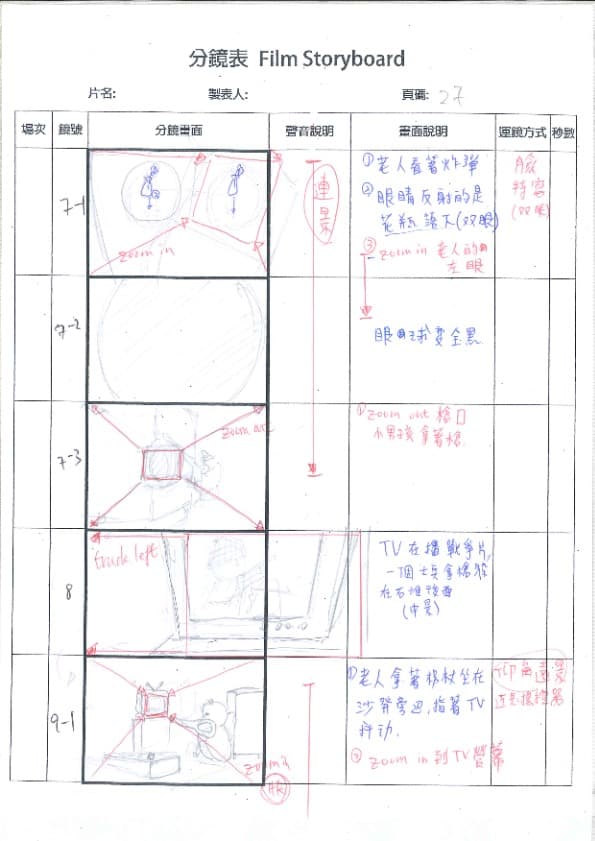 分鏡表 Film Storyboard
片名: 製表人: 頁碼: 27
場次 鏡號 分鏡畫面 聲音說明 畫面說明 運鏡方式 秒數
7-1
zoom in
連景
①老人看著炸彈
②眼睛反射的是
花瓶讀下(双眼)
③zoom in 老人的
左眼
臉
特寫
(双眼)
7-2
眼球變全黑
7-3
zoom out
①zoom out 槍口
小男孩拿著槍.
8
track left
TV在播戰爭片,
一個士兵拿槍躲
在石堆後面
(中景)
9-1
zoom in
①老人拿著柺杖坐在
沙發旁邊,指著TV
抖動.
② zoom in 到TV螢幕
仰角遠景